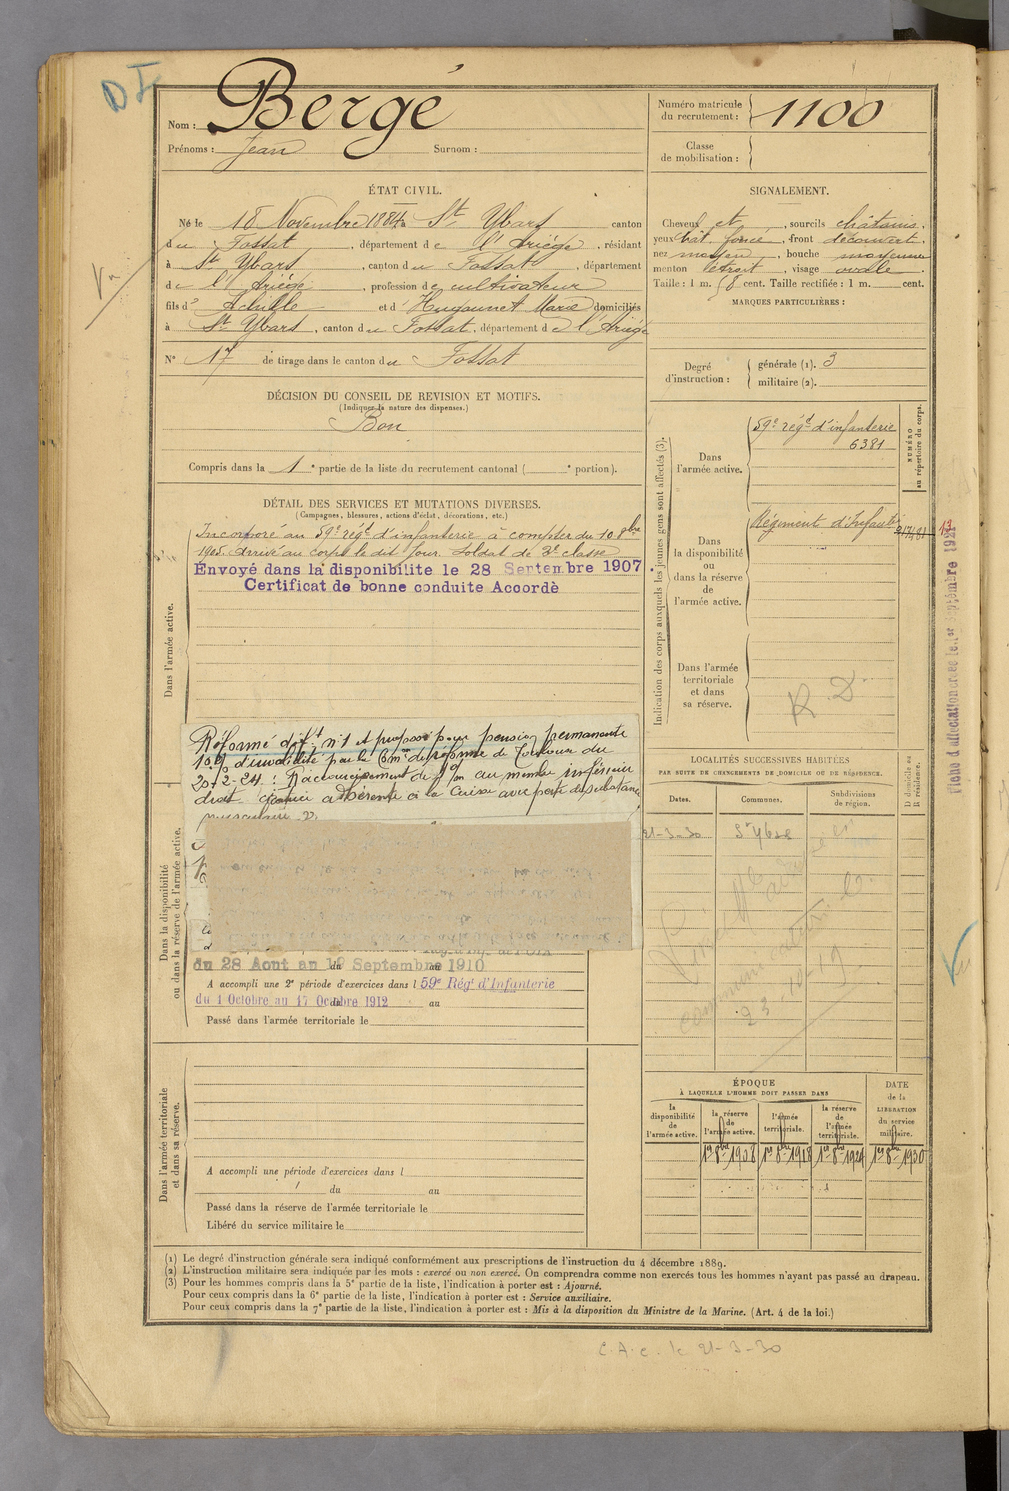 D I
Nom : Bergé
Prénoms : Jean Surnom :
Numéro matricule du recrutement : 1100
Classe de mobilisation :
ÉTAT CIVIL.
Né le 18 Novembre 1884 à St Ybars canton
du Fossat, département de l'Ariège, résidant
à St Ybars, canton du Fossat, département
de l'Ariège, profession de cultivateur
fils d' Achille et d' Huguenet Marie domiciliés
à St Ybars, canton du Fossat, département de l'Ariège
N° 17 de tirage dans le canton du Fossat
SIGNALEMENT.
Cheveux et, sourcils châtains,
yeux chât. foncé, front découvert,
nez moyen, bouche moyenne
menton étroit, visage ovale.
Taille : 1 m. 58 cent. Taille rectifiée : 1 m. cent.
MARQUES PARTICULIÈRES :
Degré d'instruction : générale (1). 3
militaire (2).
DÉCISION DU CONSEIL DE REVISION ET MOTIFS.
(Indiquer la nature des dispenses.)
Bon
Compris dans la 1e partie de la liste du recrutement cantonal ( e portion).
Indication des corps auxquels les jeunes gens sont affectés (3).
NUMÉRO au répertoire du corps.
Dans l'armée active.
59e régt d'infanterie
6381
Dans la disponibilité ou dans la réserve de l'armée active.
Régiment d'Infanterie
Dans l'armée territoriale et dans sa réserve.
R. D.
DÉTAIL DES SERVICES ET MUTATIONS DIVERSES.
(Campagnes, blessures, actions d'éclat, décorations, etc.)
Dans l'armée active.
Incorporé au 59e régt d'infanterie à compter du 10 8bre
1905. Arrivé au corps le dit jour. Soldat de 2e classe
Envoyé dans la disponibilite le 28 Septembre 1907.
Certificat de bonne conduite Accordè
Réformé déft n°1 et proposé pour pension permanente
10% d'invalidité par la Comon de réforme de Toulouse du
20-2-24 : Raccourcissement de au membre inférieur
droit cicatrice adhérente à la cuisse avec perte de substance
musculaire
Dans la disponibilité
ou dans la réserve de l'armée active.
du 28 Aout au 19 Septembre 1910
A accompli une 2e période d'exercices dans l 59e Régt d'Infanterie
du 1 Octobre au 17 Octobre 1912 au
Passé dans l'armée territoriale le
LOCALITÉS SUCCESSIVES HABITÉES
PAR SUITE DE CHANGEMENTS DE DOMICILE OU DE RÉSIDENCE.
Dates. Communes. Subdivisions de région. D domicile ou R résidence.
21-3-30 St Ybars
23-10-19
Fiche d'affectation créée le 1er Septembre 1921
ÉPOQUE
À LAQUELLE L'HOMME DOIT PASSER DANS
la disponibilité de l'armée active.
la réserve de l'armée active.
l'armée territoriale.
la réserve de l'armée territoriale.
DATE de la LIBÉRATION du service militaire.
1er 8bre 1908 1er 8bre 1918 1er 8bre 1924 1er 8bre 1930
Dans l'armée territoriale
et dans sa réserve.
A accompli une période d'exercices dans l
du au
Passé dans la réserve de l'armée territoriale le
Libéré du service militaire le
(1) Le degré d'instruction générale sera indiqué conformément aux prescriptions de l'instruction du 4 décembre 1889.
(2) L'instruction militaire sera indiquée par les mots : exercé ou non exercé. On comprendra comme non exercés tous les hommes n'ayant pas passé au drapeau.
(3) Pour les hommes compris dans la 5e partie de la liste, l'indication à porter est : Ajourné.
Pour ceux compris dans la 6e partie de la liste, l'indication à porter est : Service auxiliaire.
Pour ceux compris dans la 7e partie de la liste, l'indication à porter est : Mis à la disposition du Ministre de la Marine. (Art. 4 de la loi.)
C.A.C. le 21-3-30